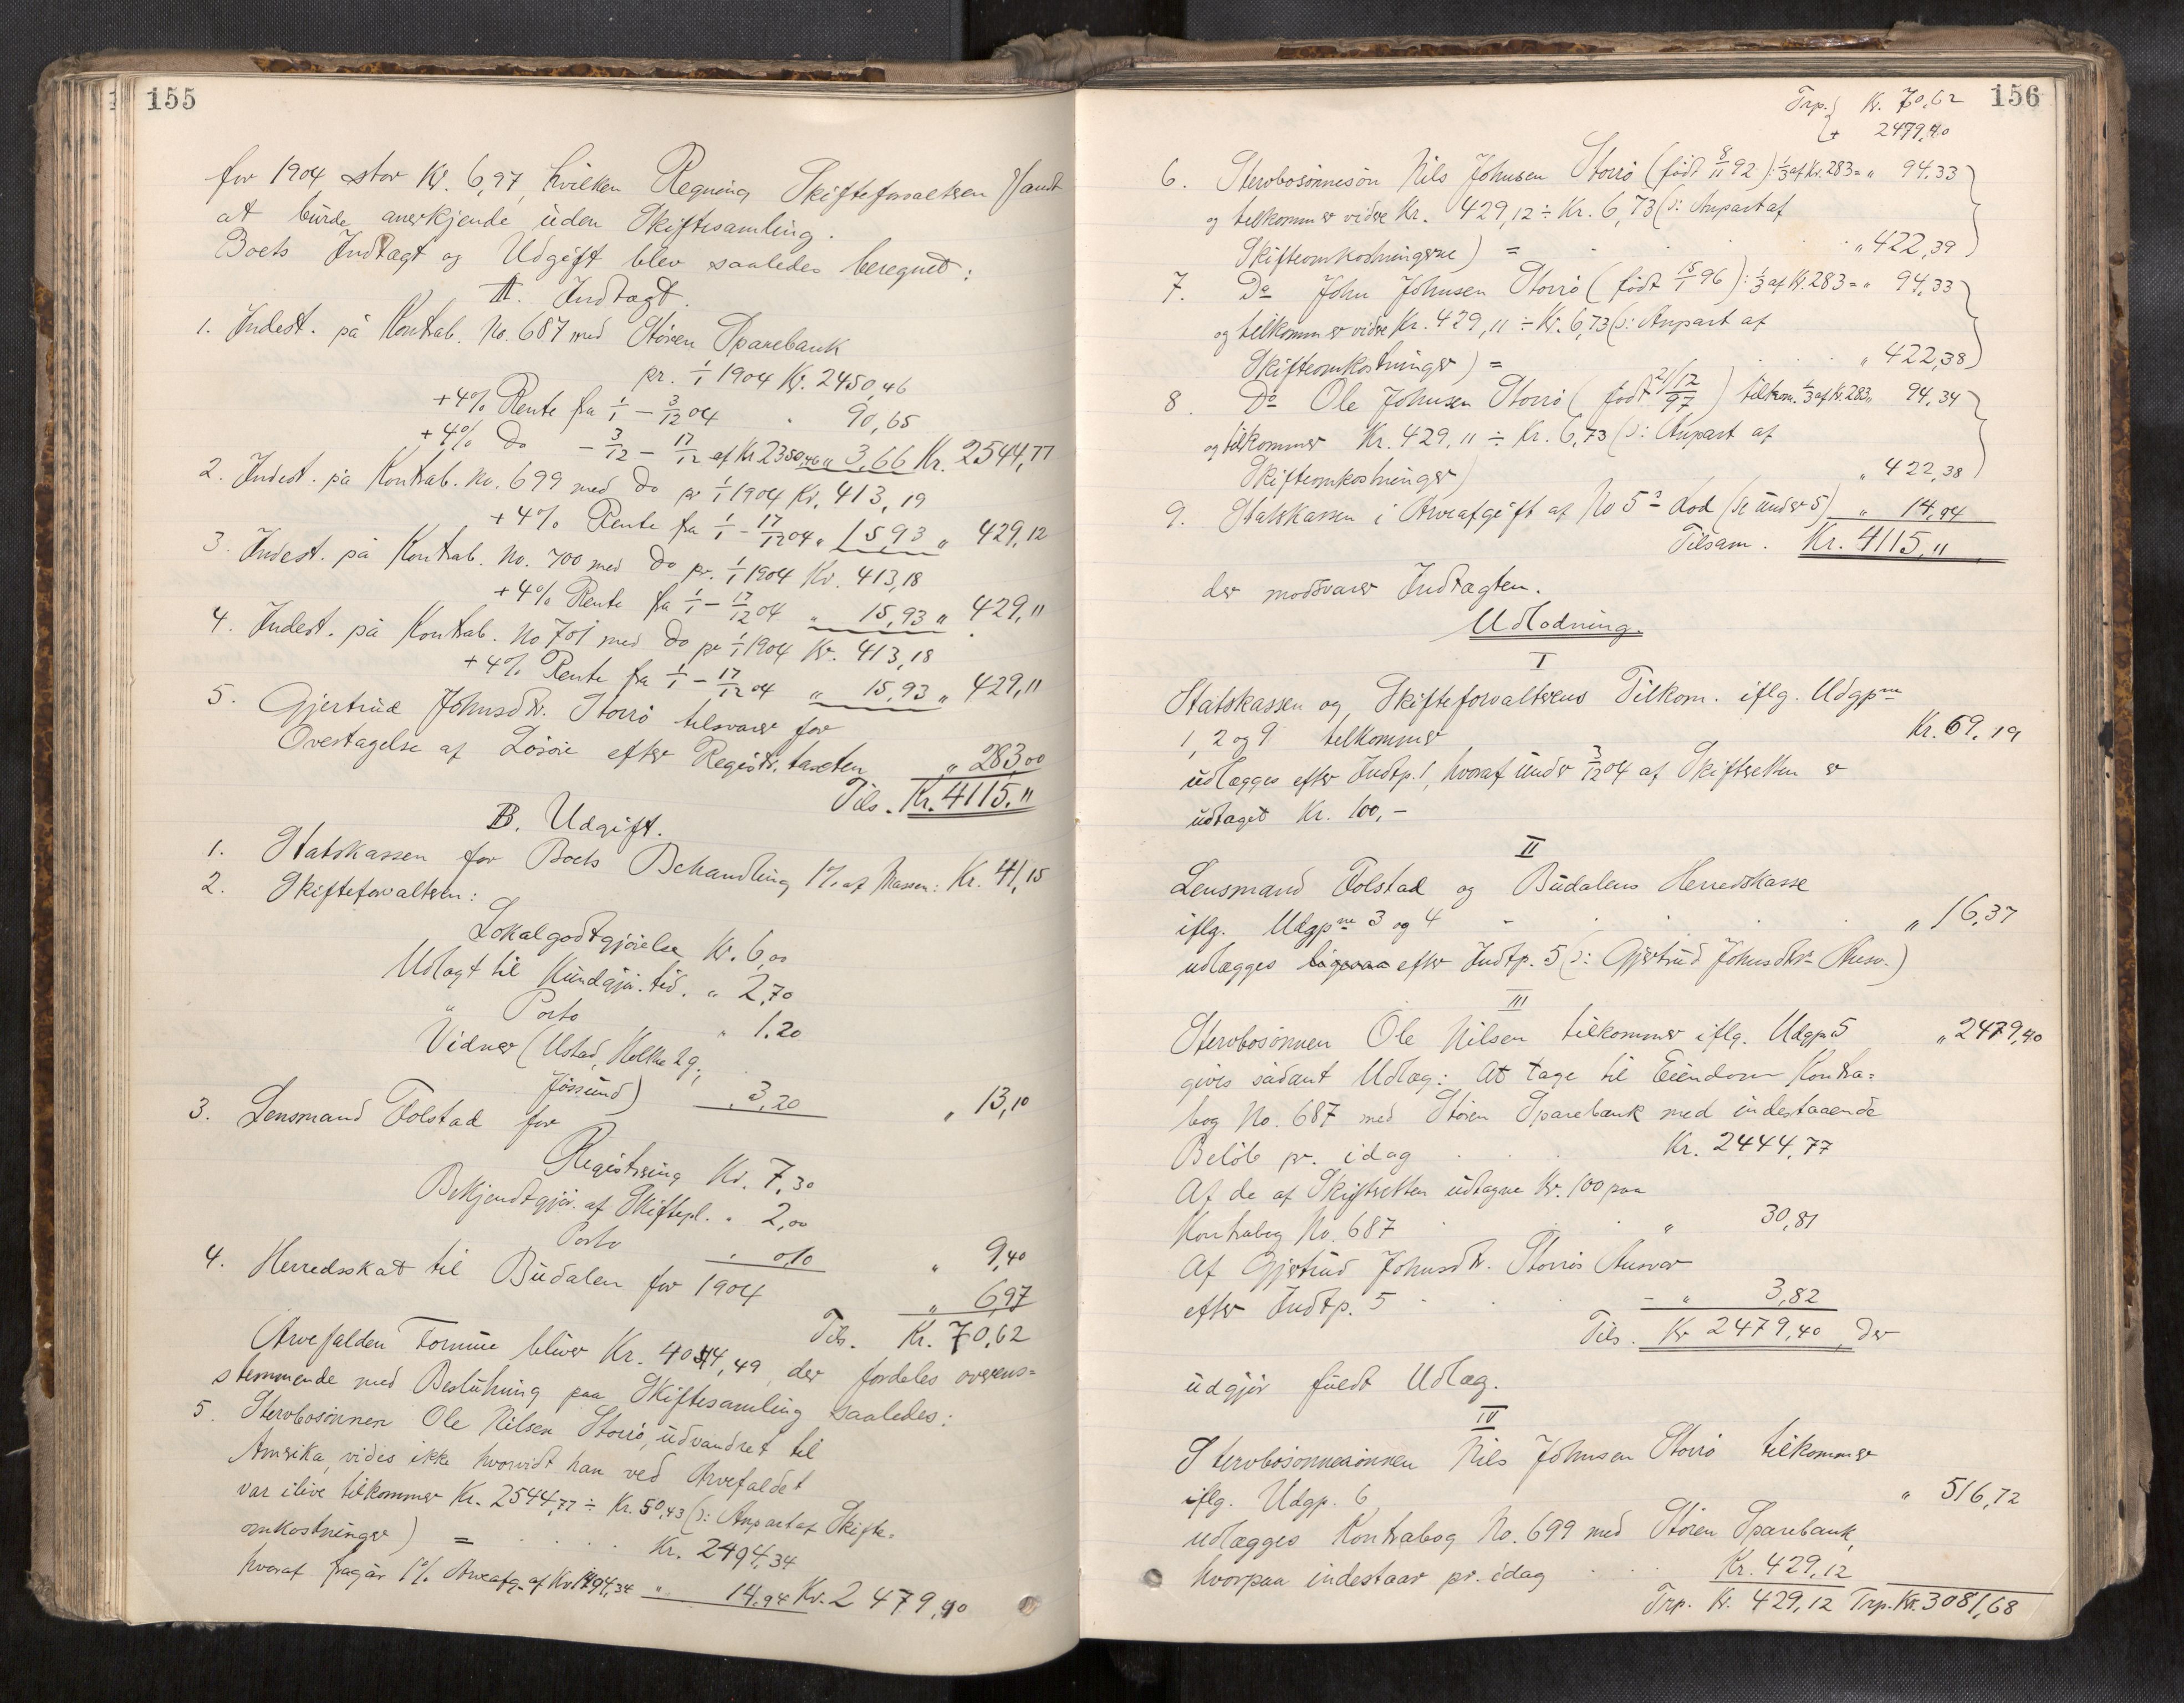 155
for 1904 stor Kr. 6,97, hvilken Regning Skifteforvalteren fandt
at burde anerkjende uden Skiftesamling.
Boets Indtægt og Udgift blev saaledes beregnet:
A. Indtægt.
1. Indest. på Kontrab. No. 687 med Støren Sparebank
pr. 1/1 1904 Kr. 2450,46
+4% Rente fra 1/1 – 3/12 04 " 90,65
+4% Do – 3/12 – 17/12 af Kr 2350,46 " 3,66 Kr. 2544,77
2. Indest. på Kontrab. No. 699 med Do pr 1/1 1904 Kr. 413,19
+4% Rente fra 1/1 – 17/12 04 " 15 93 " 429,12
3. Indest. på Kontrab. No. 700 med Do pr. 1/1 1904 Kr. 413,18
+4% Rente fra 1/1 – 17/12 04 " 15,93 " 429,11
4. Indest. på Kontrab. No 701 med Do pr 1/1 1904 Kr. 413,18
+4% Rente fra 1/1 – 17/12 04 " 15,93 " 429,11
5. Gjertrud Johnsdtr. Storrø tilsvarer for
Overtagelse af Løsøie efter Registr. taxten " 283,00
Tils. Kr. 4115,11
B. Udgift.
1. Statskassen for Boets Behandling 1% af Massen: Kr. 41,15
2. Skifteforvalteren:
Lokalgodtgjørelse Kr. 6,00
Udlagt til Kundgjør. tid. " 2,70
" Porto " 1.20
Vidner (Ustad, Kolha 2 g.,
Jøssund) " 3,20 " 13,10
3. Lensmand Folstad for
Registrering Kr. 7,30
Bekjendtgjør. af Skiftepl. " 2,00
Porto " 0,10 " 9,40
4. Herredsskat til Budalen for 1904 " 6,97
Tils. Kr. 70,62
Arvefalden Formue bliver Kr. 4044,49, der fordeles overens=
stemmende med Beslutning paa Skiftesamling saaledes:
5. Stervbosønnen Ole Nilsen Storrø, udvandret til
Amerika, vides ikke hvorvidt han ved Arvefaldet
var ilive tilkommer Kr. 2544,77 ÷ Kr. 50,43 (ɔ: Anpart af Skifte=
omkostninger) = . . . . Kr. 2494,34
hvoraf fragår 1% Arveafg. af Kr 1494,34 " 14,94 Kr. 2479,40
156
Trp. { Kr. 70,62
+ 2479,40
6. Stervbosønnesøn Nils Johnsen Storrø (født 8/11 92): 1/3 af Kr. 283 = " 94,33
og tilkommer vidre Kr. 429,12 ÷ Kr. 6,73 (ɔ: Anpart af
Skifteomkostningerne) = . . . " 422,39
7. Do John Johnsen Storrø (født 15/1 96): 1/3 af Kr. 283 = " 94,33
og tilkommer vidre Kr. 429,11 ÷ Kr. 6,73 (ɔ: Anpart af
Skifteomkostninger) = . . . " 422,38
8. Do Ole Johnsen Storrø (født 21/12 97) tilkom. 1/3 af Kr. 283 " 94,34
og tilkommer Kr. 429,11 ÷ Kr. 6,73 (ɔ: Anpart af
Skifteomkostninger) " 422,38
9. Statskassen i Arveafgift af No 5s Lod (se under 5) " 14,94
Tilsam. Kr. 4115,11
der modsvarer Indtægten.
Udlodning.
I
Statskassen og Skifteforvalterens Tilkom. iflg. Udgpne
1, 2 og 9 tilkommer Kr. 69,19
udlægges efter Indtp. 1, hvoraf under 3/12 04 af Skifteretten er
udtaget Kr. 100,–
II
Lensmand Folstad og Budalens Herredskasse
iflg. Udgpne 3 og 4 . . . " 16,37
udlægges ligesaa efter Indtp. 5 (ɔ: Gjertrud Johnsdtrs Ansv.)
III
Stervbosønnen Ole Nilsen tilkommer iflg. Udgp 5 " 2479,40
gives sådant Udlæg: At tage til Eiendom Kontra=
bog No. 687 med Støren Sparebank med indestaaende
Beløb pr. idag . . . Kr. 2444,77
Af de af Skifteretten udtagne Kr. 100 paa
Kontrabog No. 687 . . . " 30,81
Af Gjertrud Johnsdtr. Storrøs Ansvar
efter Indtp. 5 . . . " 3,82
Tils. Kr 2479,40, der
udgjør fuldt Udlæg.
IV
Stervbosønnesønnen Nils Johnsen Storrø tilkommer
iflg. Udgp. 6 " 516,72
udlægges Kontrabog No. 699 med Støren Sparebank,
hvorpaa indestaar pr. idag . . . Kr. 429,12
Trp. Kr. 429,12 Trp. Kr. 3081,68